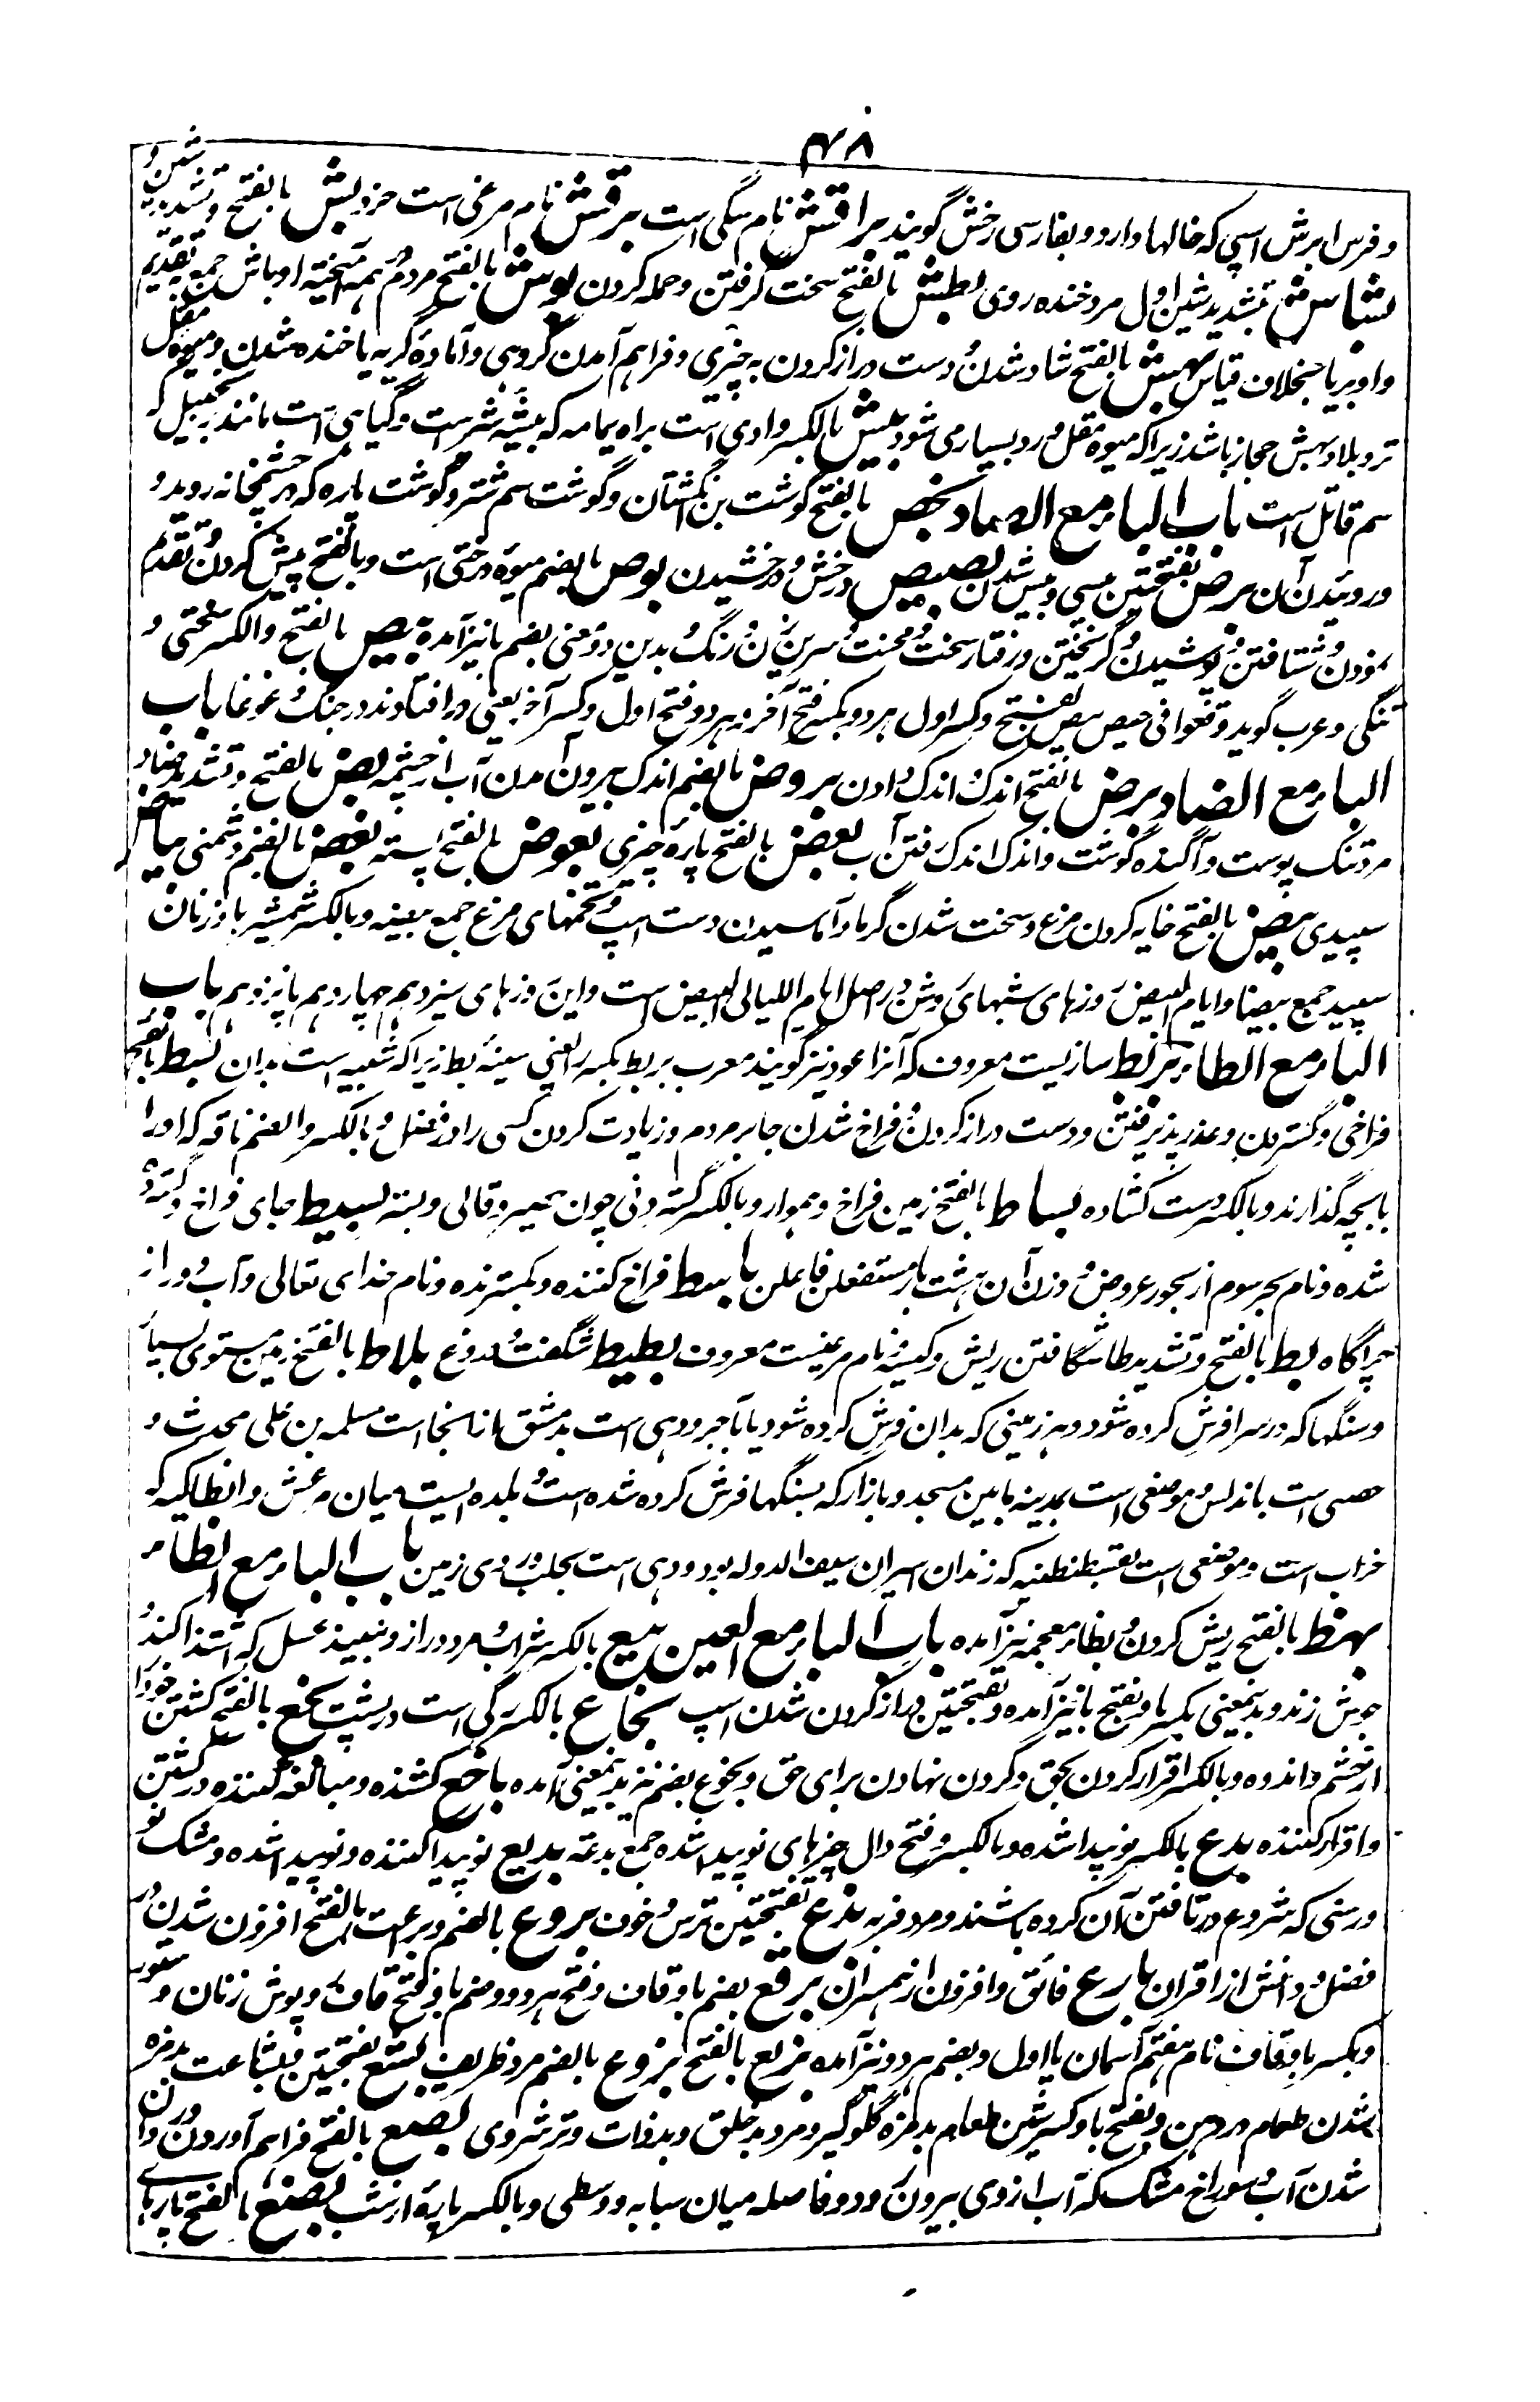 ۴۸
و فرس ابرش اسپی که خالها دارد و بفارسی رخش گویند براقش نام سگی است برقش نام مرغی است خرد بش بالفتح و تشدید شین و
بشاش بتشدید شین اول مرد خنده روی بطش بالفتح سخت گرفتن و حمله کردن بوش بالفتح مردم همه آمیخته اوباش جمع بتقدیم
واو بر یا بخلاف قیاس بهش بالفتح شاد شدن و دست دراز کردن به چیزی و فراهم آمدن گروهی و آماده گریه یا خنده شدن و میوه مقل
تر و بلاد بهش حجاز باشد زیرا که میوه مقل درو بسیار می شود بیش بالکسر وادی است براه یمامه که بیشه شیر است و گیاهی است مانند زنجبیل که
سم قاتل است باب الباء مع الصاد بخص بالفتح گوشت بن انگشتان و گوشت سم شتر و گوشت پاره که در چشمخانه روید و
و روئیدن آن برص بفتحتین پیسی و پیس شدن بصیص درخش و درخشیدن بوص بالضم میوه درختی است و بالفتح پیش کردن و تقدم
نمودن و شتافتن و پوشیدن و گریختن و رفتار سخت و محنت و سرین زن و رنگ بدین دو معنی بضم با نیز آمده بیص بالفتح والکسر سختی و
تنگی و عرب گوید وقعوا فی حیص بیص بفتح و کسر اول هر دو و بکسر و فتح آخر هر دو و فتح اول و کسر آخر یعنی در افتادند در جنگ و غوغا باب
الباء مع الضاد برض بالفتح اندک اندک دادن بروض بالضم اندک بیرون آمدن آب از چشمه بض بالفتح و تشدید ضاد
مرد تنک پوست و آگنده گوشت و اندک اندک رفتن آب بعض بالفتح پاره چیزی بعوض بالفتح پشه بغض بالضم دشمنی بیاض
سپیدی بیض بالفتح خایه کردن مرغ و سخت شدن گرما و آماسیدن دست اسپ و تخمهای مرغ جمع بیضه و بالکسر شمشیرها و زنان
سپید جمع بیضا و ایام البیض روزهای شبهای روشن و در اصل ایام اللیالی البیض است و این روزهای سیزدهم چهاردهم پانزدهم باب
الباء مع الطاء بربط سازیست معروف که آنرا عود نیز گویند معرب بربط بکسر را یعنی سینه بط زیرا که شبیه است بدان بسط بالفتح
فراخی و گستردن و عذر پذیرفتن و دست دراز کردن و فراخ شدن جا بر مردم و زیادت کردن کسی را در فضل و بالکسر والضم ناقه که او را
با بچه گذارند و بالکسر دست کشاده بساط بالفتح زمین فراخ و هموار و بالکسر گستردنی چون حصیر و قالی و بستر بسیط جای فراخ و گسترده
شده و نام بحر سوم از بحور عروض و وزن آن هشت بار مستفعلن فاعلن باسط فراخ کننده و گسترنده و نام خدای تعالی و آب دور از
چراگاه بط بالفتح و تشدید طا شگافتن ریش و کیسه و نام مرغیست معروف بطیط شگفت و دروغ بلاط بالفتح زمین مستوی بسیار
و سنگها که در سرا فرش کرده شود و هر زمینی که بدان فرش کرده شود یا بآجر و دهی است بدمشق ازانجا است مسلمه بن علی محدث و
حصی است باندلس و موضعی است بمدینه مابین مسجد و بازار که بسنگها فرش کرده شده است و بلده ایست میان مرعش و انطاکیه که
خراب است و موضعی است بقسطنطنیه که زندان اسیران سیف الدوله بود و دهی است بحلب و روی زمین باب الباء مع الظاء
بهظ بالفتح ریش کردن و بظاء معجمه نیز آمده باب الباء مع العین بتع بالکسر شراب و مرد دراز و نبیذ عسل که اشتداد کند و
جوش زند و بدینمعنی بکسر با و بفتح با نیز آمده و بفتحتین دراز گردن شدن اسپ بخاع بالکسر رگی است در پشت بخع بالفتح کشتن خود را
از خشم و اندوه و بالکسر اقرار کردن بحق و گردن نهادن برای حق و بخوع بضم نیز بدینمعنی آمده باخع کشنده و مبالغه کننده در کشتن
و اقرار کننده بدع بالکسر نو پیدا شده و بالکسر و فتح دال چیزهای نو پیدا شده جمع بدعة بدیع نو پیدا کننده و نو پیدا شده و مشک نو
و رسنی که شروع در تافتن آن کرده باشند و مرد فربه بذع بفتحتین ترس و خوف بروع بالضم و براعت بالفتح افزون شدن در
فضل و دانش از اقران بارع فائق و افزون از همسران برقع بضم با و قاف و فتح هر دو و ضم با و فتح قاف روپوش زنان و ستور
و بکسر با و قاف نام هفتم آسمان یا اول و بضم هر دو نیز آمده بزیع بالفتح بزوع بالضم مرد ظریف بشع بفتحتین و بشاعت بدمزه
شدن طعام در دهن و بفتح با و کسر شین طعام بدمزه گلوگیر و مرد بدخلق و بدذات و ترشروی بصع بالفتح فراهم آوردن و روان
شدن آب و سوراخ مشک که آب ازوی بیرون رود و فاصله میان سبابه و وسطی و بالکسر پاره از شب بضع بالفتح پارهای